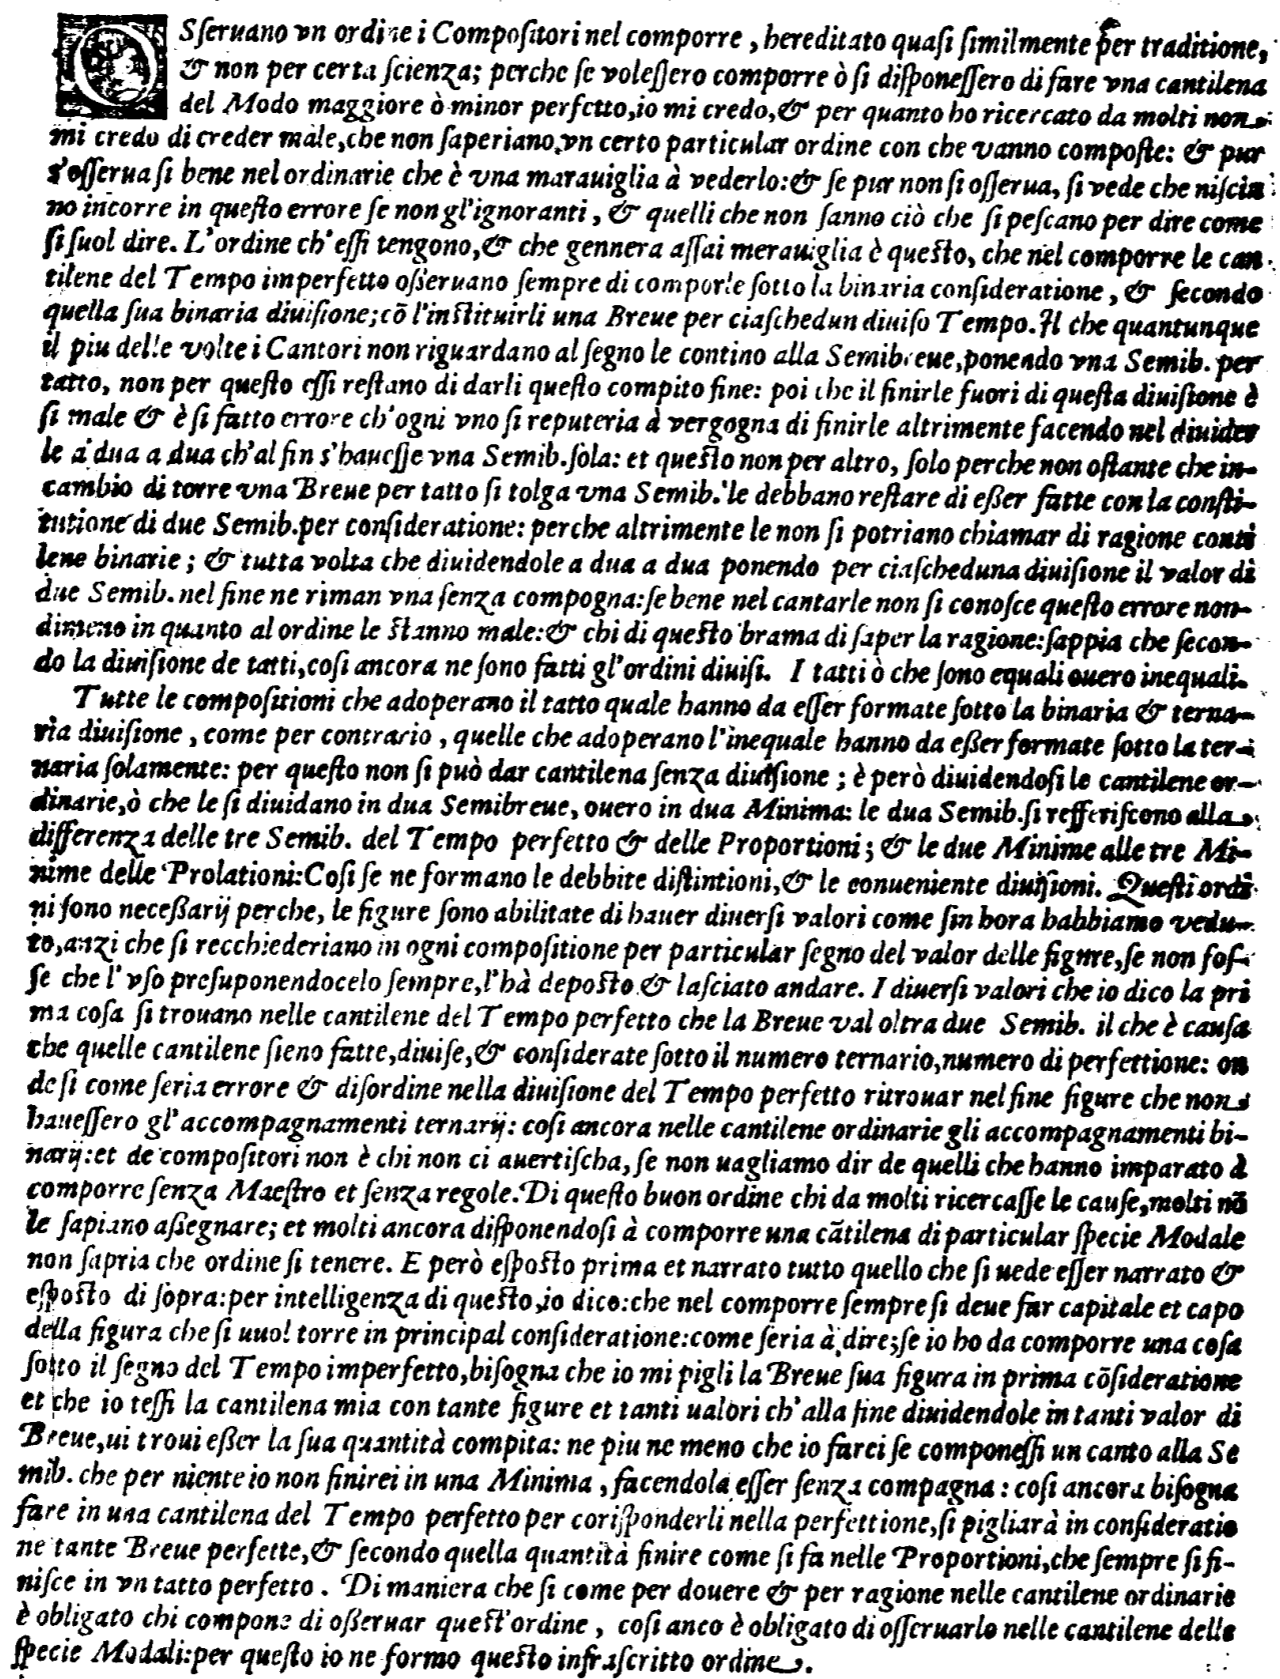 OSſeruano vn ordine i Compoſitori nel comporre, hereditato quaſi ſimilmente per traditione,
& non per certa ſcienza; perche ſe voleſſero comporre ò ſi diſponeſſero di fare vna cantilena
del Modo maggiore ò minor perfetto,io mi credo,& per quanto ho ricercato da molti non
mi credo di creder male,che non ſaperiano,vn certo particular ordine con che vanno compoſte: & pur
s'oſſerua ſi bene nel ordinarie che è vna marauiglia à vederlo:& ſe pur non ſi oſſerua, ſi vede che niſciu
no incorre in queſto errore ſe non gl'ignoranti, & quelli che non ſanno ciò che ſi peſcano per dire come
ſi ſuol dire. L'ordine ch'eſſi tengono,& che gennera aſſai merauiglia è queſto, che nel comporre le can
tilene del Tempo imperfetto oſſeruano ſempre di comporle ſotto la binaria conſideratione, & ſecondo
quella ſua binaria diuiſione;cõ l'inſtituirli una Breue per ciaſchedun diuiſo Tempo. Il che quantunque
il piu delle volte i Cantori non riguardano al ſegno le contino alla Semibreue,ponendo vna Semib. per
tatto, non per queſto eſſi reſtano di darli queſto compito fine: poi che il finirle fuori di queſta diuiſione è
ſi male & è ſi fatto errore ch'ogni vno ſi reputeria à vergogna di finirle altrimente facendo nel diuider
le a dua a dua ch'al fin s'haueſſe vna Semib.ſola: et queſto non per altro, ſolo perche non oſtante che in-
cambio di torre vna Breue per tatto ſi tolga vna Semib. le debbano reſtare di eßer fatte con la conſti-
tutione di due Semib.per conſideratione: perche altrimente le non ſi potriano chiamar di ragione conti
lene binarie; & tutta volta che diuidendole a dua a dua ponendo per ciaſcheduna diuiſione il valor di
due Semib. nel fine ne riman vna ſenza compogna:ſe bene nel cantarle non ſi conoſce queſto errore non-
dimeno in quanto al ordine le ſtanno male:& chi di queſto brama di ſaper la ragione:ſappia che ſecon-
do la diuiſione de tatti,coſi ancora ne ſono fatti gl'ordini diuiſi. I tatti ò che ſono equali ouero inequali.
Tutte le compoſitioni che adoperano il tatto quale hanno da eſſer formate ſotto la binaria & terna-
ria diuiſione, come per contrario, quelle che adoperano l'inequale hanno da eßer formate ſotto la ter-
naria ſolamente: per queſto non ſi può dar cantilena ſenza diuiſione; è però diuidendoſi le cantilene or-
dinarie,ò che le ſi diuidano in dua Semibreue, ouero in dua Minima: le dua Semib.ſi refferiſcono alla
differenza delle tre Semib. del Tempo perfetto & delle Proportioni; & le due Minime alle tre Mi-
nime delle Prolationi:Coſi ſe ne formano le debbite diſtintioni,& le conueniente diuiſioni. Queſti ordi
ni ſono neceßarij perche, le figure ſono abilitate di hauer diuerſi valori come ſin hora habbiamo vedu-
to,anzi che ſi recchiederiano in ogni compoſitione per particular ſegno del valor delle figure,ſe non foſ-
ſe che l'vſo preſuponendocelo ſempre,l'hà depoſto & laſciato andare. I diuerſi valori che io dico la pri
ma coſa ſi trouano nelle cantilene del Tempo perfetto che la Breue val oltra due Semib. il che è cauſa
che quelle cantilene ſieno fatte,diuiſe,& conſiderate ſotto il numero ternario,numero di perfettione: on
de ſi come ſeria errore & diſordine nella diuiſione del Tempo perfetto ritrouar nel fine figure che non
haueſſero gl'accompagnamenti ternarij: coſi ancora nelle cantilene ordinarie gli accompagnamenti bi-
narij:et de compoſitori non è chi non ci auertiſcha, ſe non uagliamo dir de quelli che hanno imparato à
comporre ſenza Maeſtro et ſenza regole. Di queſto buon ordine chi da molti ricercaſſe le cauſe,molti nõ
le ſapiano aßegnare; et molti ancora diſponendoſi à comporre una cãtilena di particular ſpecie Modale
non ſapria che ordine ſi tenere. E però eſpoſto prima et narrato tutto quello che ſi uede eſſer narrato &
eſpoſto di ſopra:per intelligenza di queſto,io dico:che nel comporre ſempre ſi deue far capitale et capo
della figura che ſi uuol torre in principal conſideratione:come ſeria à dire;ſe io ho da comporre una coſa
ſotto il ſegno del Tempo imperfetto,biſogna che io mi pigli la Breue ſua figura in prima cõſideratione
et che io teſſi la cantilena mia con tante figure et tanti ualori ch'alla fine diuidendole in tanti valor di
Breue,ui troui eßer la ſua quantità compita: ne piu ne meno che io farei ſe componeſſi un canto alla Se
mib. che per niente io non finirei in una Minima, facendola eſſer ſenza compagna: coſi ancora biſogna
fare in una cantilena del Tempo perfetto per coriſponderli nella perfettione,ſi pigliarà in conſideratio
ne tante Breue perfette,& ſecondo quella quantità finire come ſi fa nelle Proportioni,che ſempre ſi fi-
niſce in vn tatto perfetto. Di maniera che ſi come per douere & per ragione nelle cantilene ordinarie
è obligato chi compone di oßeruar queſt'ordine, coſi anco è obligato di oſſeruarlo nelle cantilene delle
ſpecie Modali:per queſto io ne formo queſto infraſcritto ordine.